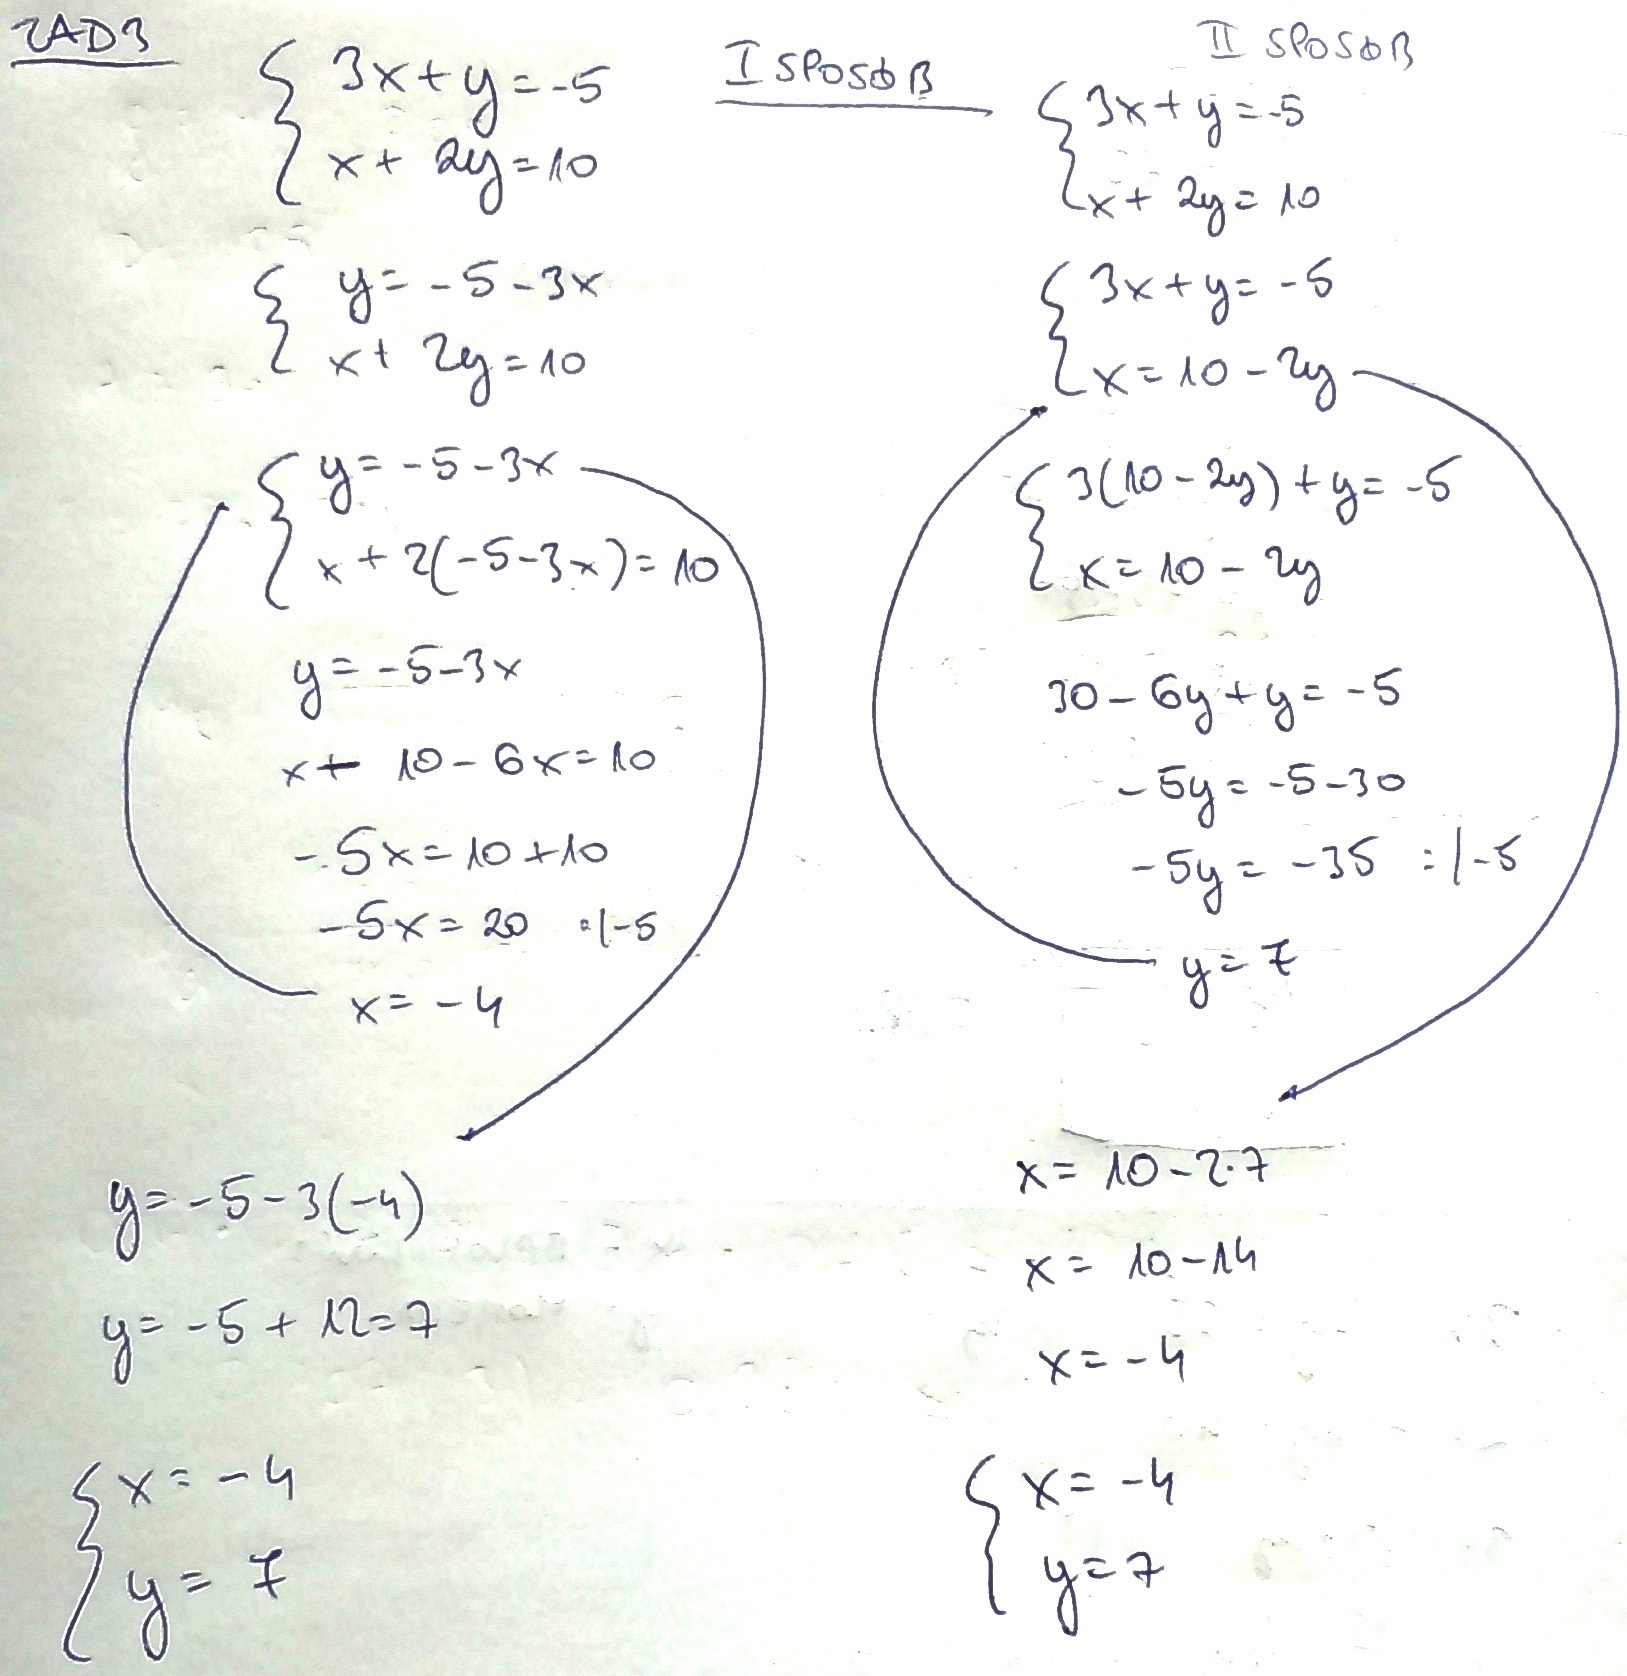 ZAD3
I SPOSÓB
3x + y = -5
x + 2y = 10
y = -5 - 3x
x + 2y = 10
y = -5 - 3x
x + 2(-5 - 3x) = 10
y = -5 - 3x
x - 10 - 6x = 10
-5x = 10 + 10
-5x = 20 :/-5
x = -4
y = -5 - 3(-4)
y = -5 + 12 = 7
x = -4
y = 7
II SPOSÓB
3x + y = -5
x + 2y = 10
3x + y = -5
x = 10 - 2y
3(10 - 2y) + y = -5
x = 10 - 2y
30 - 6y + y = -5
-5y = -5 - 30
-5y = -35 :/-5
y = 7
x = 10 - 2·7
x = 10 - 14
x = -4
x = -4
y = 7